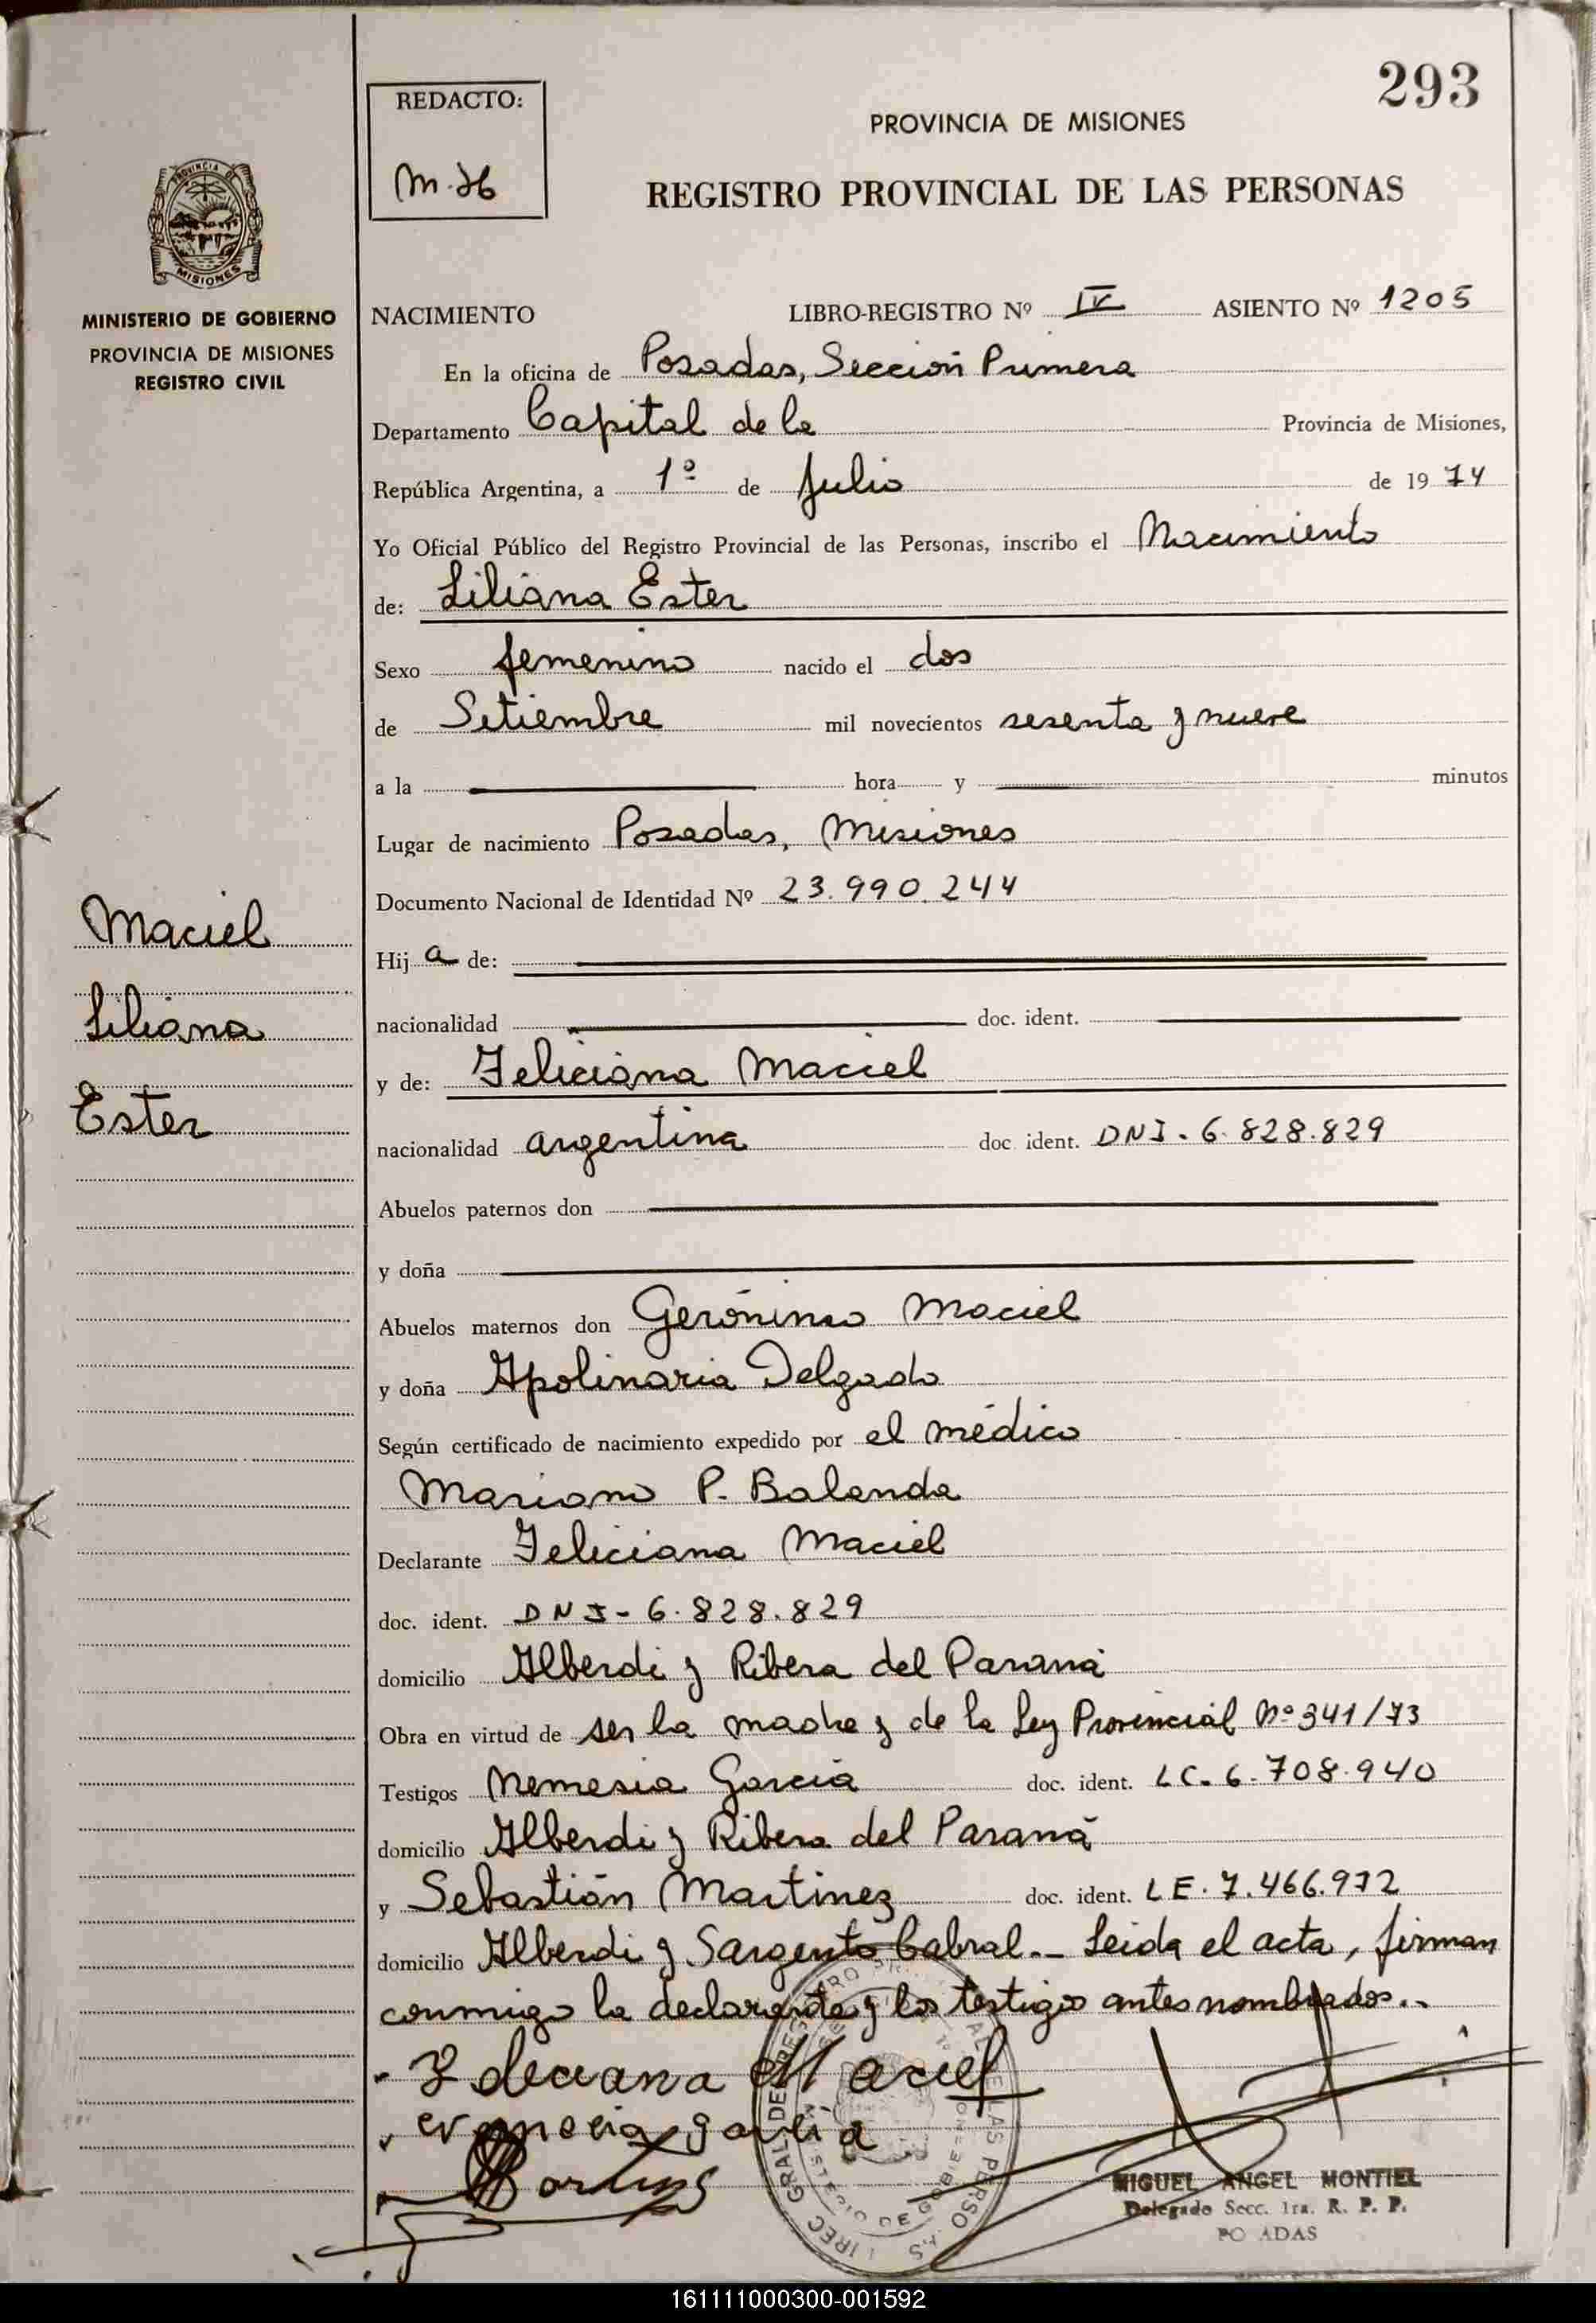 293
REDACTO:
PROVINCIA DE MISIONES
REGISTRO PROVINCIAL DE LAS PERSONAS
PROVINCIA DE
MISIONES
MINISTERIO DE GOBIERNO
PROVINCIA DE MISIONES
REGISTRO CIVIL
NACIMIENTO LIBRO-REGISTRO Nº IV ASIENTO Nº 1205
En la oficina de Posadas, Sección Primera
Departamento Capital de la Provincia de Misiones,
República Argentina, a 1º de Julio de 19 74
Yo Oficial Público del Registro Provincial de las Personas, inscribo el Nacimiento
de: Liliana Ester
Sexo femenino nacido el dos
de Setiembre mil novecientos sesenta y nueve
a la hora y minutos
Lugar de nacimiento Posadas, Misiones
Documento Nacional de Identidad Nº 23.990.244
Maciel
Liliana
Ester
Hij a de:
nacionalidad doc. ident.
y de: Feliciana Maciel
nacionalidad argentina doc ident. DNI. 6.828.829
Abuelos paternos don
y doña
Abuelos maternos don Gerónimo Maciel
y doña Apolinaria Delgado
Según certificado de nacimiento expedido por el médico
Mariano P. Balanda
Declarante Feliciana Maciel
doc. ident. DNI - 6.828.829
domicilio Alberdi y Ribera del Paraná
Obra en virtud de ser la madre y de la Ley Provincial Nº 341/73
Testigos Nemesia García doc. ident. LC. 6.708.940
domicilio Alberdi y Ribera del Paraná
y Sebastián Martinez doc. ident. LE. 7.466.972
domicilio Alberdi y Sargento Cabral.- Leida el acta, firman
conmigo la declarante y los testigos antes nombrados.-
Feliciana Maciel
garcia
MIGUEL ANGEL MONTIEL
Delegado Secc. 1ra. R. P. P.
161111000300-001592